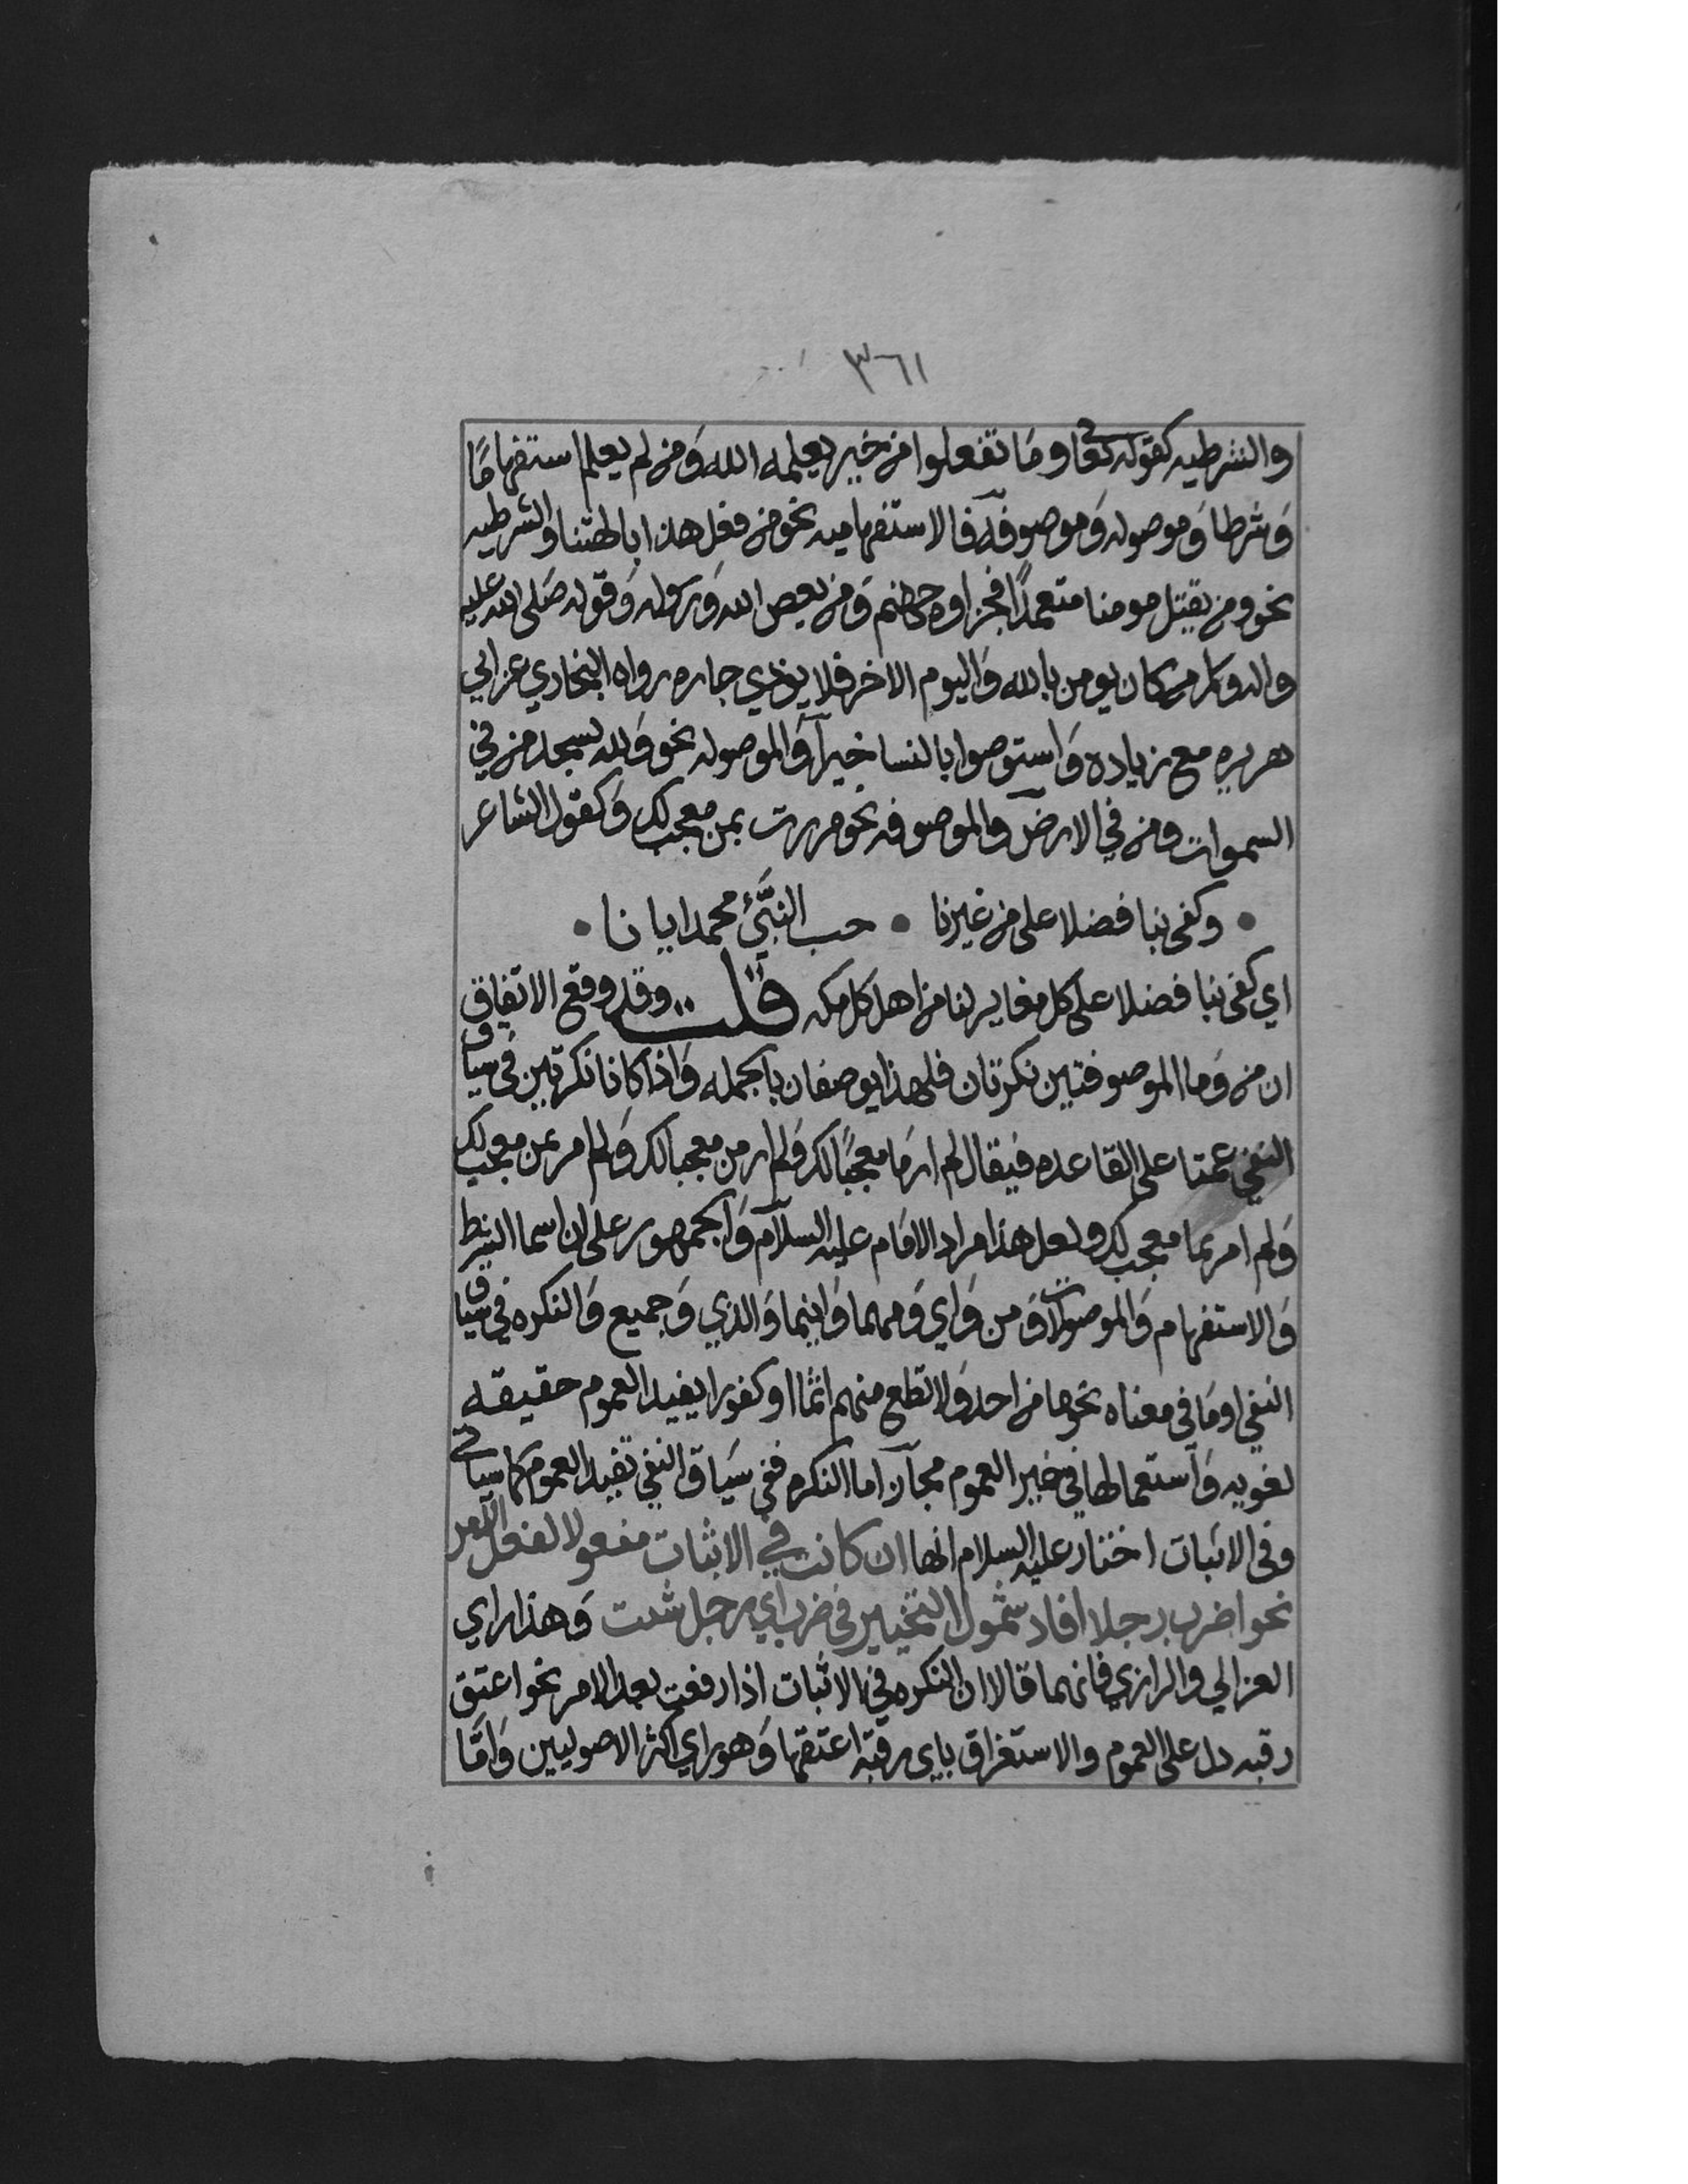 ٣٦١
والشرطيه كقوله تعا وما تفعلوا من خير يعلمه الله ومن لم يعلم استفهامًا
وشرطا وموصوله وموصوفه فالاستفهاميه نحو من فعل هذا بالهتنا والشرطيه
نحو ومن يقتل مومنا متعمدًا فجزاوه جهنم ومن يعص الله ورسوله وقوله صلى الله عليه
واله وسلم من كان يومن بالله واليوم الاخر فلا يوذي جاره رواه البخاري عن ابي
هريره مع زياده واستوصوا بالنسا خيرا والموصوله نحو ولله يسجد من في
السموات ومن في الارض والموصوفه نحو مررت بمن معجب لك وكقول الشاعر
• وكفى بنا فضلا على من غيرنا • حب النبيّ محمد ايانا •
اي كفى بنا فضلا على كل مغاير لنا من اهل كل مكه قلت وقد وقع الاتفاق
ان من وما الموصوفتين نكرتان فلهذا يوصفان بالجمله واذا كانا نكرتين في سياق
النفي عمتا على القاعده فيقال لم ار ما معجبًا لك ولم ار من معجبا لك ولم امر بمن معجب لك
ولم امر بما معجب لك ولعل هذا مراد الامام عليه السلام والجمهور على ان اسما الشرط
والاستفهام والموصولات ومن واي ومهما واينما والذي وجميع والنكره في سياق
النفي او ما في معناه نحو ما من احد ولا تطع منهم اثما او كفورا يفيد العموم حقيقه
لغويه واستعمالها في غير العموم مجاز اما النكره ففي سياق النفي تفيد العموم كما سياتي
وفي الاثبات اختار عليه السلام انها ان كانت في الاثبات مفعولا لفعل الامر
نحو اضرب رجلا افاد شمول التخيير في ضرب اي رجل شئت وهذا راي
الغزالي والرازي فانهما قالا ان النكره في الاثبات اذا رفعت بعد الامر نحو اعتق
رقبه دل على العموم والاستغراق باي رقبة اعتقها وهو راي اكثر الاصوليين وامّا